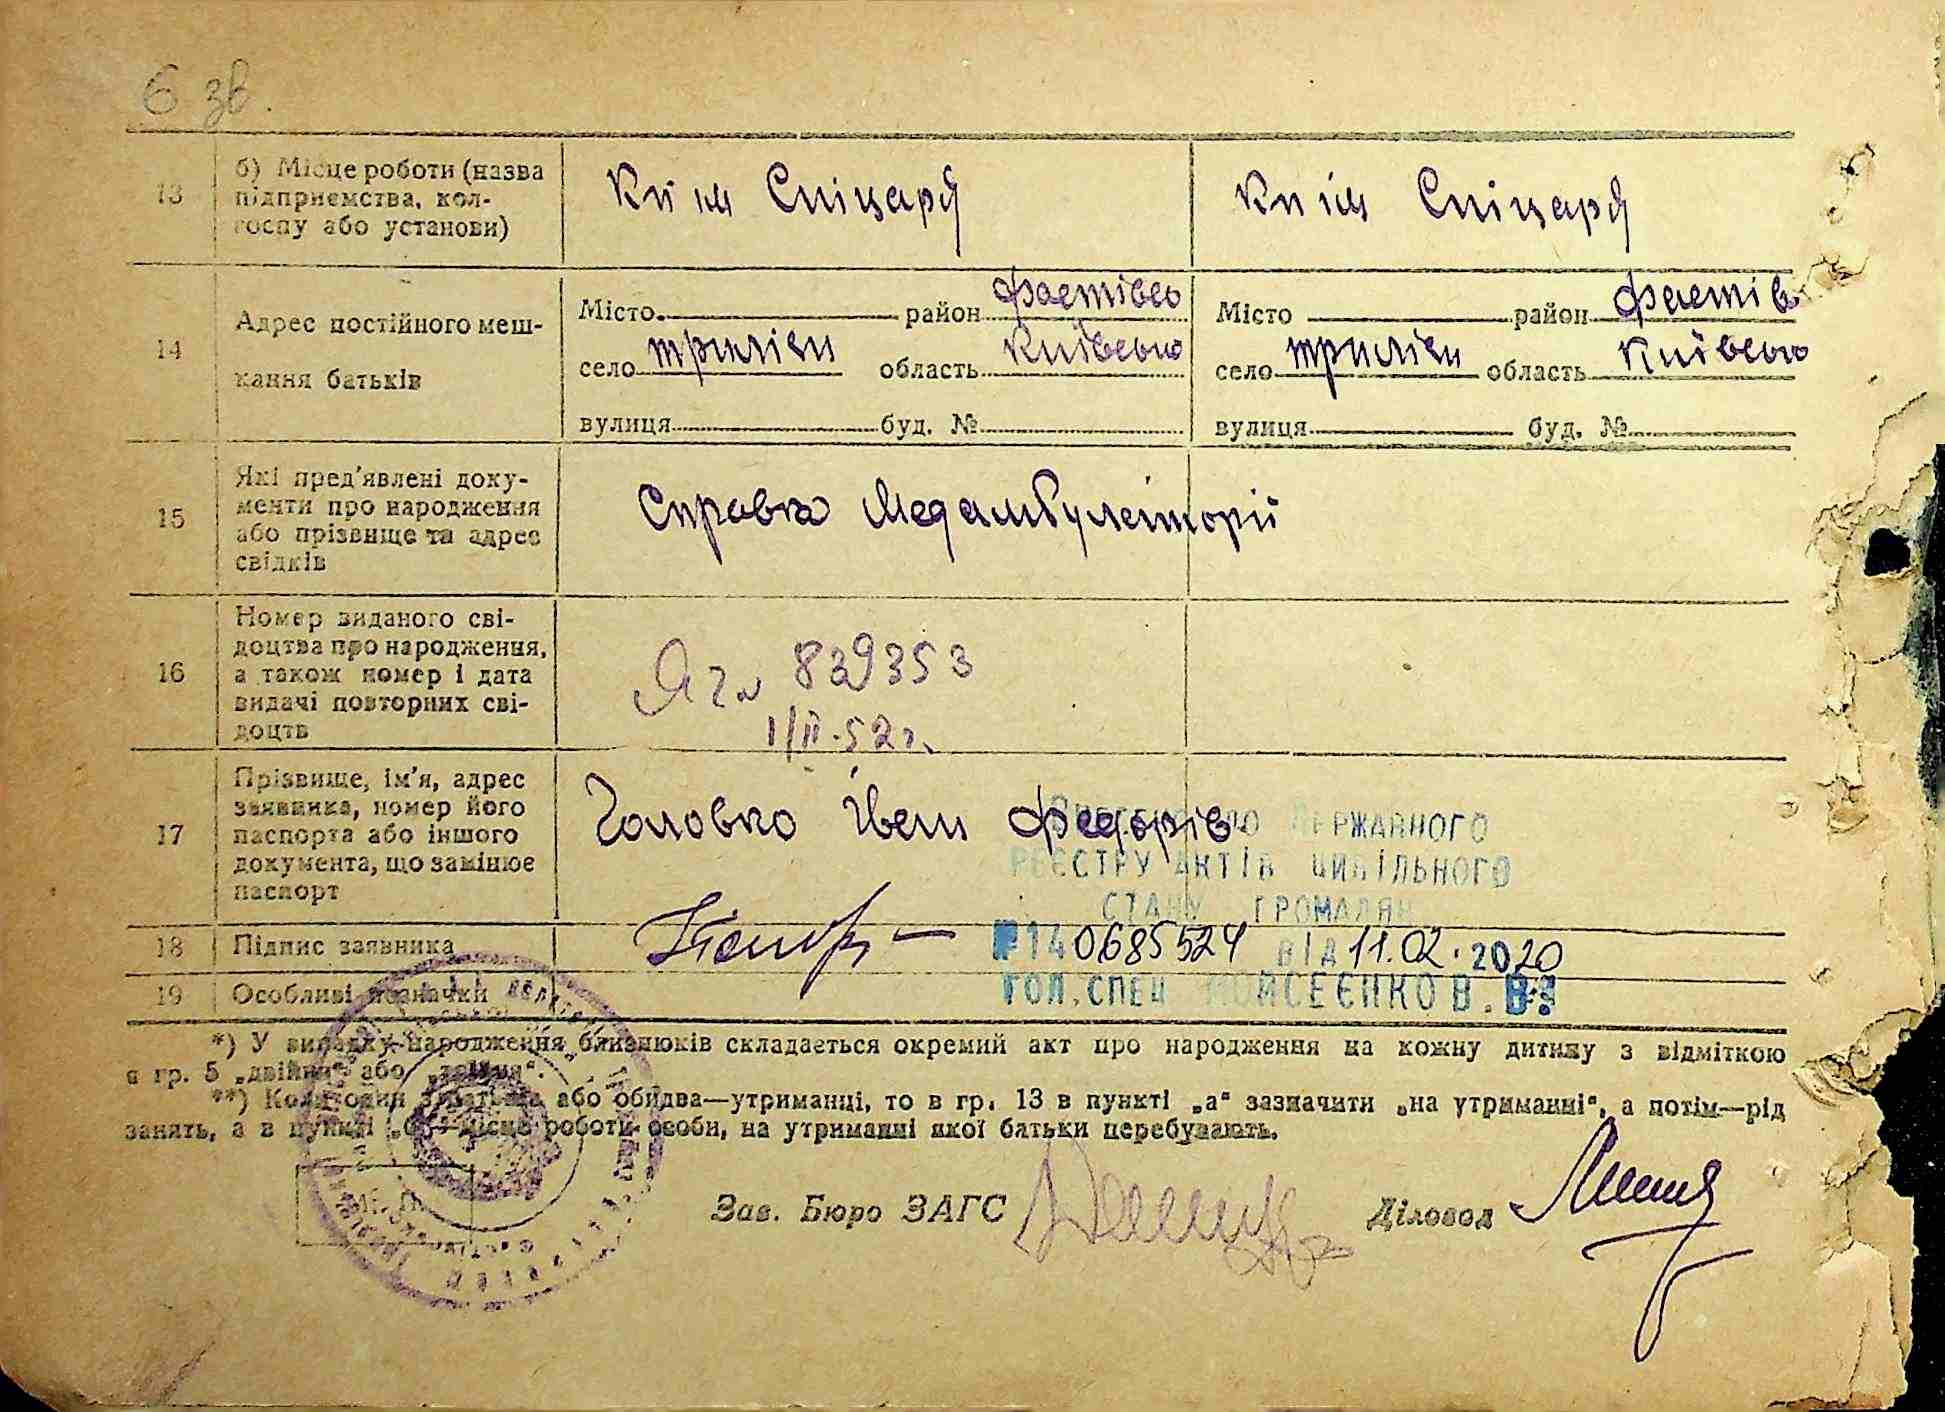 6 зв.
13
б) Місце роботи (назва
підприємства, кол-
госпу або установи)
К-п ім Спіцаря
К-п ім Спіцаря
14
Адрес постійного меш-
кання батьків
Місто район Фастівсь
село Трилєси область Київсько
вулиця буд. №
Місто район Фастів
село Трилєси область Київсько
вулиця буд. №
15
Які пред'явлені доку-
менти про народження
або прізвище та адрес
свідків
Справка Медамбулаторії
16
Номер виданого сві-
доцтва про народження,
а також номер і дата
видачі повторних сві-
доцтв
839353
1/II-52 г.
17
Прізвище, ім'я, адрес
заявника, номер його
паспорта або іншого
документа, що замінює
паспорт
Головко Іван Федорів.
ДО ДЕРЖАВНОГО
РЕЄСТРУ АКТІВ ЦИВІЛЬНОГО
СТАНУ ГРОМАДЯН
18
Підпис заявника
№140685524 ВІД 11.02.2020
19
Особливі позначки
ГОЛ.СПЕЦ МОЙСЕЄНКО В.В.
*) У випадку народження близнюків складається окремий акт про народження на кожну дитину з відміткою
в гр. 5 „двійня“ або „трійня“.
**) Коли один з батьків або обидва—утриманці, то в гр. 13 в пункті „а“ зазначити „на утриманні“, а потім—рід
занять, а в пункті „б“—місце роботи особи, на утриманні якої батьки перебувають.
М. П.
Зав. Бюро ЗАГС
Діловод